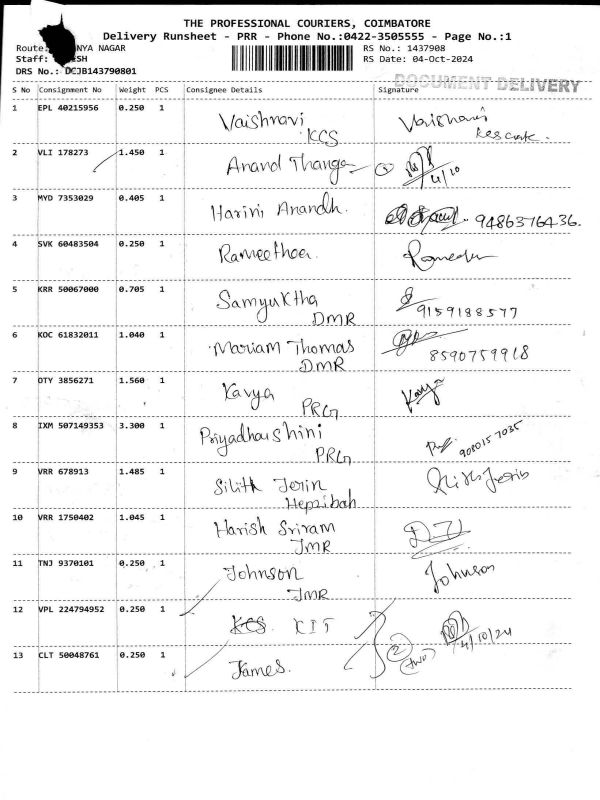 THE PROFESSIONAL COURIERS, COIMBATORE
Delivery Runsheet - PRR - Phone No.:0422-3505555 - Page No.:1
Route: NYA NAGAR
RS No.: 1437908
Staff: SH
RS Date: 04-Oct-2024
DRS No.: DCJB143790801
DOCUMENT DELIVERY
S No Consignment No Weight PCS Consignee Details Signature
1 EPL 40215956 0.250 1 Vaishnavi Vaishnavi
KCS
2 VLI 178273 1.450 1 Anand Thanga 1
4/10
3 MYD 7353029 0.405 1 Harini Anandh. 9486376436.
4 SVK 60483504 0.250 1 Rameethaa.
5 KRR 50067000 0.705 1 Samyuktha
DMR 9159188577
6 KOC 61832011 1.040 1 Mariam Thomas
DMR 8590759918
7 OTY 3856271 1.560 1 Kavya Kavya
PRG
8 IXM 507149353 3.300 1 Priyadharshini
PRG 9080157035
9 VRR 678913 1.485 1 Silith Jerin
Hepzibah
10 VRR 1750402 1.045 1 Harish Sriram
JMR
11 TNJ 9370101 0.250 1 Johnson Johnson
JMR
12 VPL 224794952 0.250 1 KCS KIT
2 4/10/24
(two)
13 CLT 50048761 0.250 1 James.